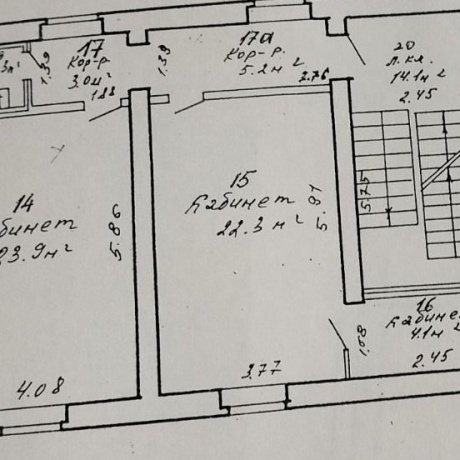 17
Кор-р.
3.0м²
1.88
1.39
17а
Кор-р.
5.2м²
2.76
1.39
20
л.кл.
14.1м²
2.45
14
бинет
23.9м²
5.86
4.08
15
Кабинет
22.3м²
5.91
3.77
5.75
16
Кабине
4.1м²
1.68
2.45